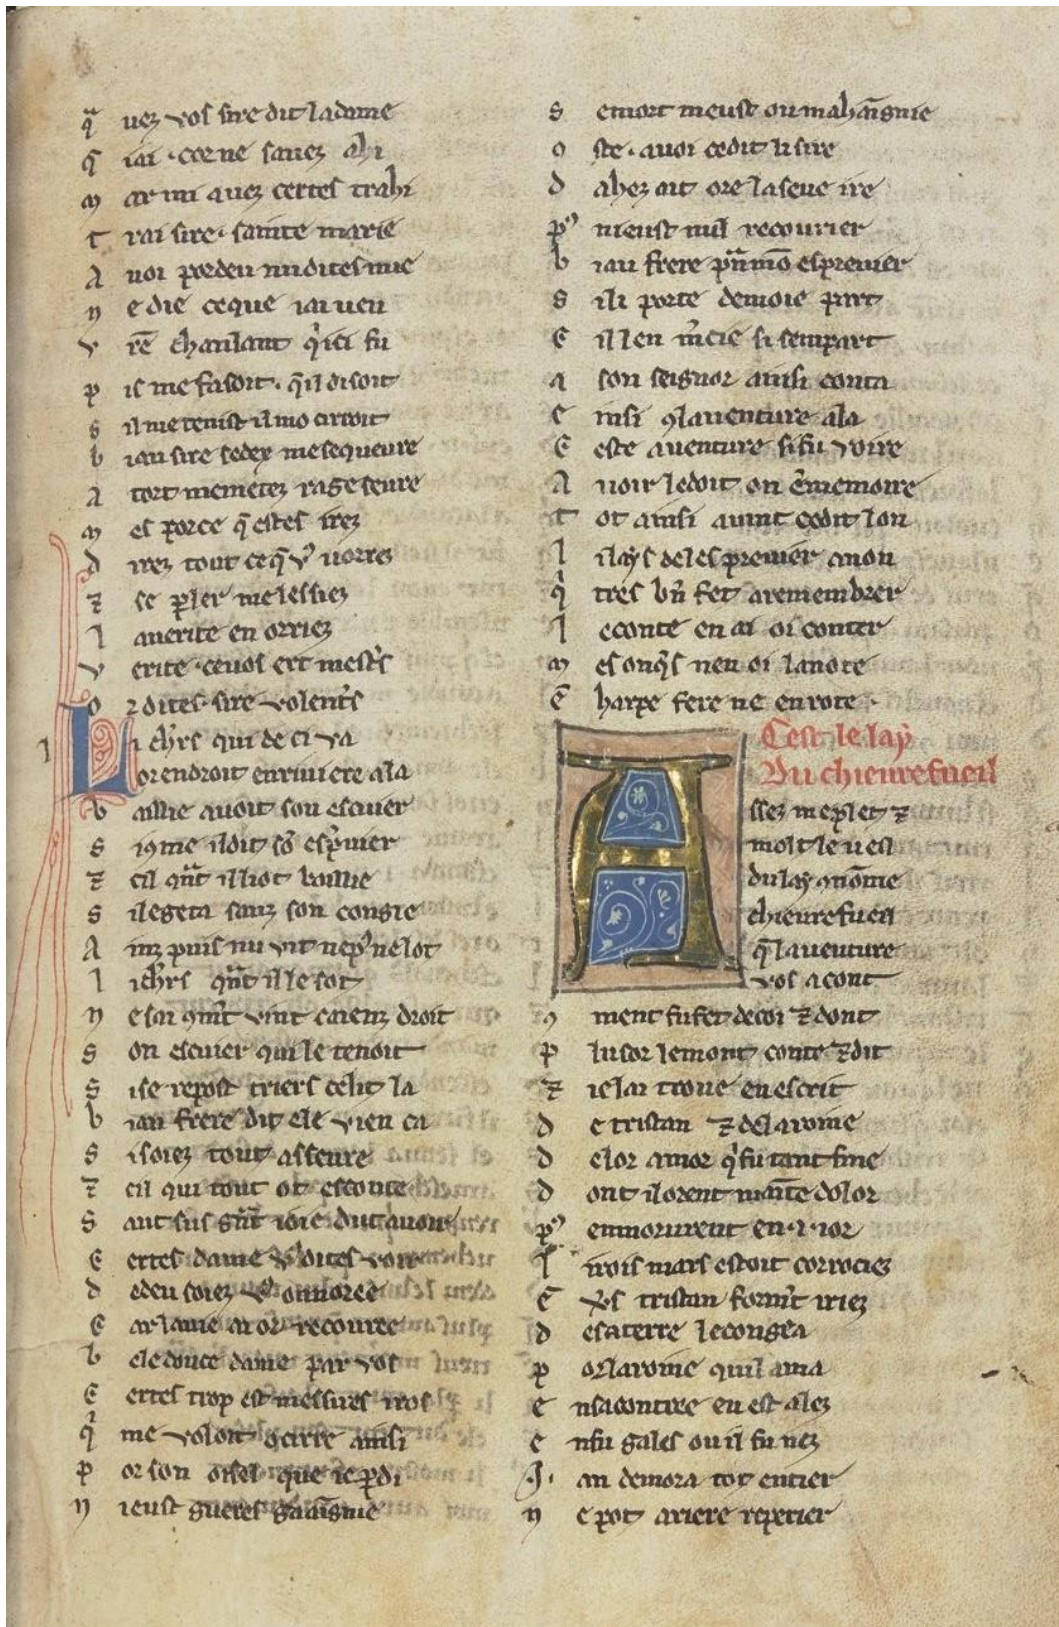 q̃ uez vos sire dit la dame
q̃ iai · cor ne sauez ahi
M ar mi auez certes trahi
T rai sire · sainte marie
A uoi por deu nu dites mie
N e die ce que iai ueu
V re chaulant q̍ ici fu
P is me fasoit · q̃ il disoit
S il me tenist il mo cirroit
B iau sire se dex me sequeure
A tort me metez rage seure
M es por ce q̃ estes irez
D irez tout ce q̃ v9 uorrez
⁊ se pler me lessiez
L a uerite en orriez
V erite · ce uos ert mest's
O r dites · sire volent's
L i ch'rs qui de ci va
Orendroit en riuiere ala
B aillie auoit son escuier
S i 9me il dit so esp'uier
⁊ cil qn̄t il li ot baillie
S il egeta sanz son congie
A inz puis nu vit ne p9 ne lot
L i ch'rs qn̄t il le sot
N e sai 9mt vint caienz droit
S on escuier qui le tenoit
S i se repost triers cel lit la
B iau frere dit ele vien ca
S i soiez tout asseure
⁊ cil qui tout ot escoute
S aut sus gn̄t ioie dut auoir
C ertes dame v9 dites voir
D e deu soiez v9 onnoree
C ar la uie ai or recouree
B ele douce dame par vos
C ertes trop est messires iros
q̍ me voloit ocirre ainsi
P or son oisel que ie pdi
N i eust gueres gaaignie
S e mort meust ou mahaignie
O ste · auoi ce dit li sire
D ahez ait ore la seue ire
P9 ni eust nul recourier
B iau frere pn̄ mō esp̄reuier
S il i porte de moie part
C il len m̄cie si sempart
A son seignor ainsi conta
E insi 9 lauenture ala
C este auenture si fu voire
A uoir le doit on ē memoire
T ot ainsi auint ce dit lon
L i lays de lespreuier a non
q̍ tres bn̄ fet a remembrer
L e conte en ai oi conter
M es onq̄s nen oi la note
E̅ harpe fere ne en rote ·
Cest le lay
Du chieurefueil
Assez me plet ⁊
molt le ueil
du lay 9 nōme
chieurefueil
q̃ lauenture
vos a cont
9 ment fu fet de coi ⁊ dont
P lusor le mont conte ⁊ dit
⁊ ie lai troue en escrit
D e tristan ⁊ de la roine
D e lor amor q̍ fu tant fine
D ont il orent mainte dolor
P9 en morurent en · i · ior
L i rois mars estoit corrociez
E̅ v's tristan form̄t iriez
D e sa terre le congea
P or la roine quil ama
E n sa contree en est alez
E n su gales ou il fu nez
.J. an demora tot entier
N e pot ariere repetier